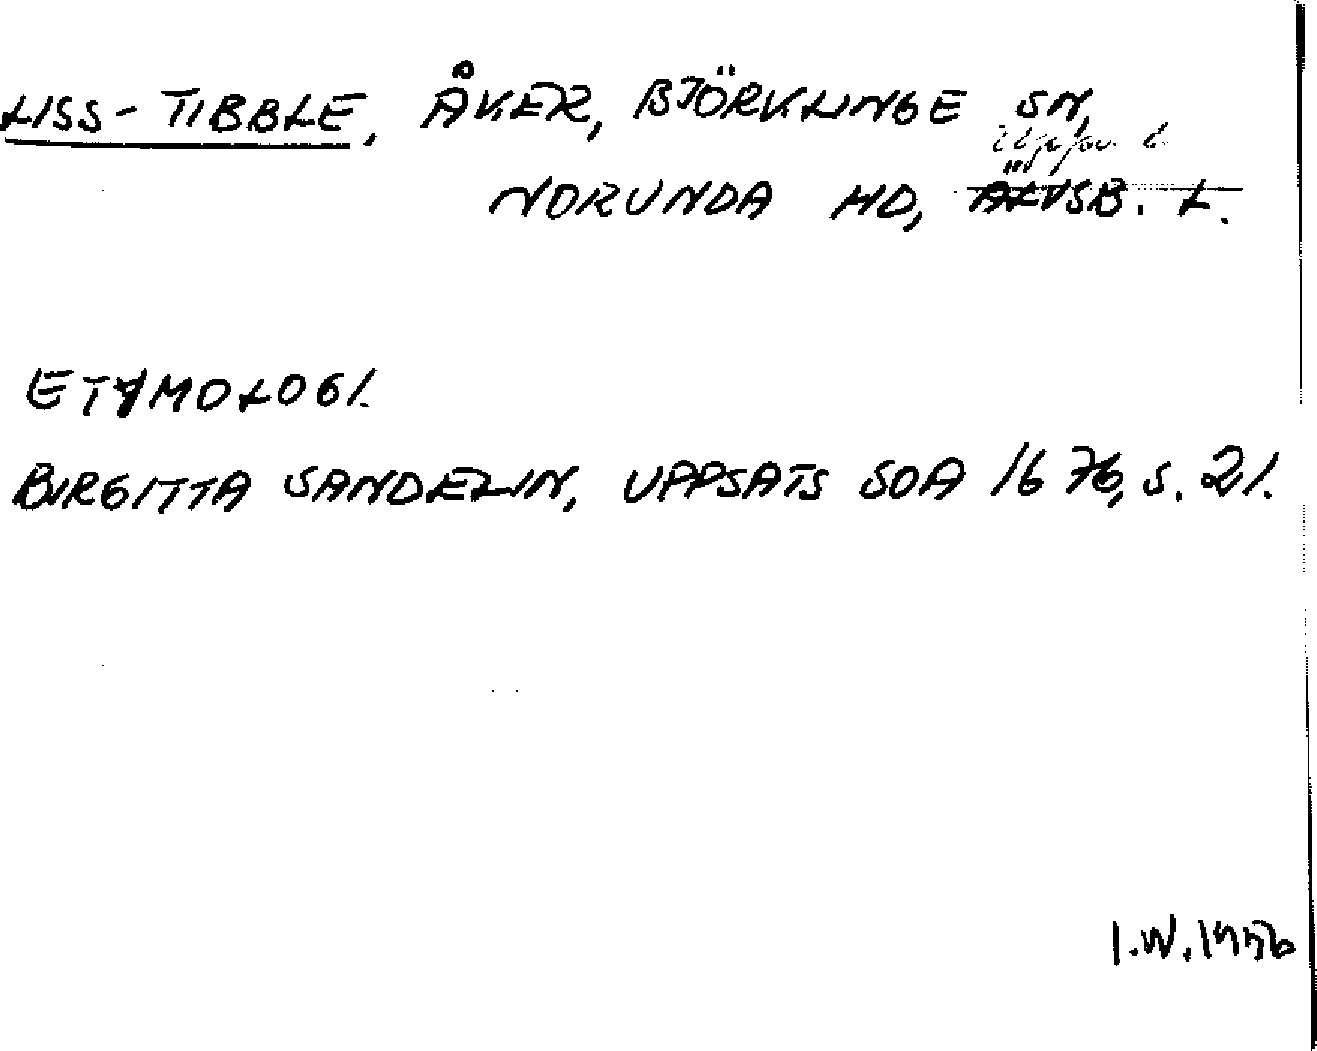 LISS-TIBBLE, ÅKER, BJÖRKLINGE SN,
Uppsu. l.
NORUNDA HD, ÄLVSB. L.
ETYMOLOGI.
BIRGITTA SANDELIN, UPPSATS SOA 1676, S. 21.
I.W. 1976